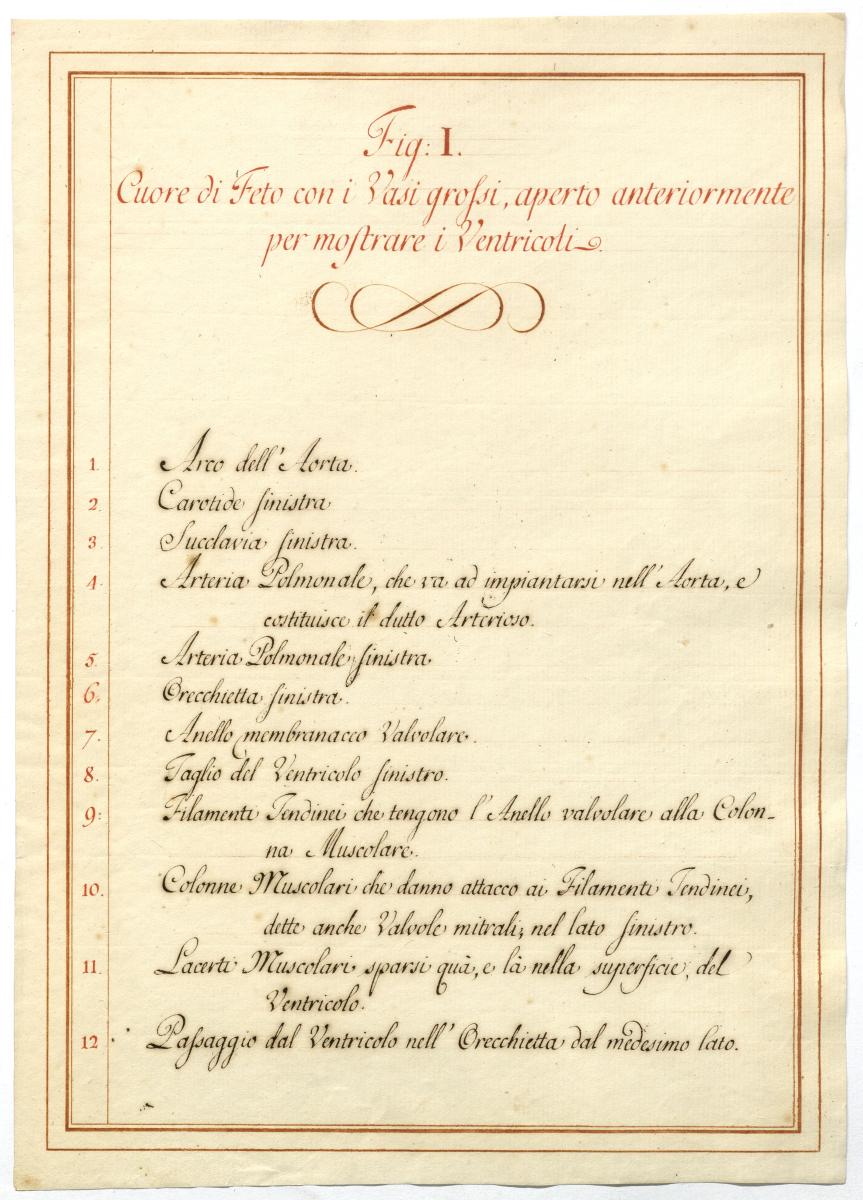 Fig: I.
Cuore di Feto con i Vasi groſsi, aperto anteriormente
per moſtrare i Ventricoli.
1. Arco dell'Aorta.
2. Carotide ſiniſtra
3. Succlavia ſiniſtra.
4. Arteria Polmonale, che va ad impiantarsi nell'Aorta, e
costituisce il dutto Arterioso.
5. Arteria Polmonale ſinistra
6. Orecchietta ſinistra.
7. Anello membranacco Valvolare.
8. Taglio del Ventricolo ſinistro.
9: Filamenti Tendinei che tengono l'Anello valvolare alla Colon-
na Muscolare.
10. Colonne Muscolari che danno attacco ai Filamenti Tendinei,
dette anche Valvole mitrali; nel lato ſinistro.
11. Lacerti Muscolari sparsi quà, e là nella superficie, del
Ventricolo.
12 Paſsaggio dal Ventricolo nell' Orecchietta dal medesimo lato.